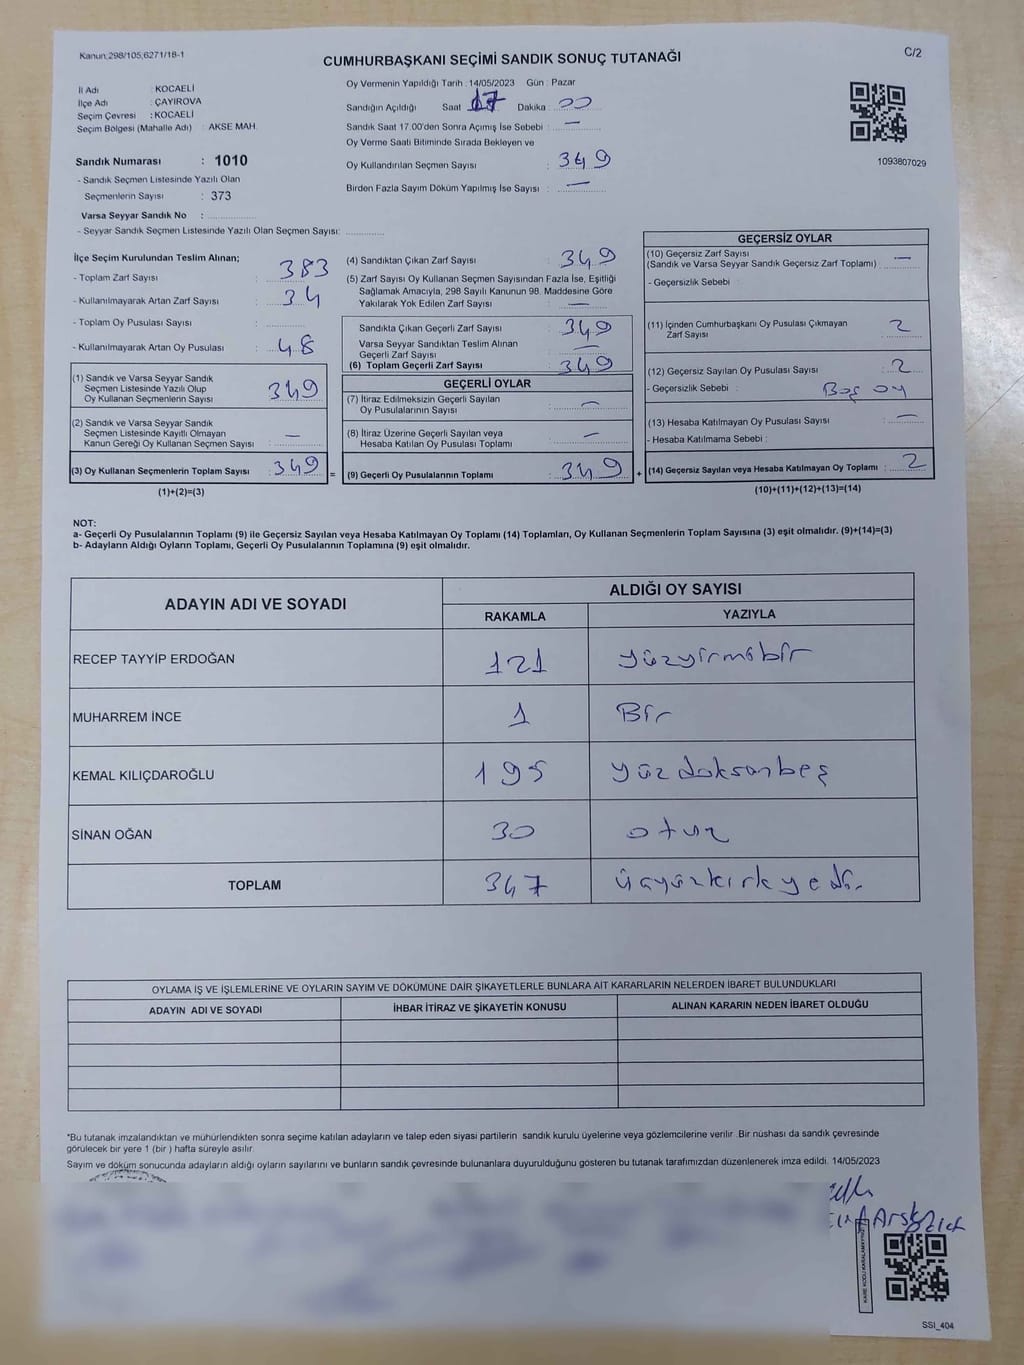 Kanun:298/105,6271/18-1
C/2
CUMHURBAŞKANI SEÇİMİ SANDIK SONUÇ TUTANAĞI
İl Adı : KOCAELİ
İlçe Adı : ÇAYIROVA
Seçim Çevresi : KOCAELİ
Seçim Bölgesi (Mahalle Adı) : AKSE MAH.
Sandık Numarası : 1010
- Sandık Seçmen Listesinde Yazılı Olan
Seçmenlerin Sayısı : 373
Varsa Seyyar Sandık No :
- Seyyar Sandık Seçmen Listesinde Yazılı Olan Seçmen Sayısı:
Oy Vermenin Yapıldığı Tarih : 14/05/2023 Gün : Pazar
Sandığın Açıldığı Saat 17 Dakika : 00
Sandık Saat 17.00'den Sonra Açımış İse Sebebi : —
Oy Verme Saati Bitiminde Sırada Bekleyen ve
Oy Kullandırılan Seçmen Sayısı : 349
Birden Fazla Sayım Döküm Yapılmış İse Sayısı : —
1093807029
İlçe Seçim Kurulundan Teslim Alınan;
- Toplam Zarf Sayısı : 383
- Kullanılmayarak Artan Zarf Sayısı : 34
- Toplam Oy Pusulası Sayısı :
- Kullanılmayarak Artan Oy Pusulası : 48
(1) Sandık ve Varsa Seyyar Sandık
Seçmen Listesinde Yazılı Olup
Oy Kullanan Seçmenlerin Sayısı : 349
(2) Sandık ve Varsa Seyyar Sandık
Seçmen Listesinde Kayıtlı Olmayan
Kanun Gereği Oy Kullanan Seçmen Sayısı : —
(3) Oy Kullanan Seçmenlerin Toplam Sayısı : 349
(1)+(2)=(3)
=
(4) Sandıktan Çıkan Zarf Sayısı : 349
(5) Zarf Sayısı Oy Kullanan Seçmen Sayısından Fazla İse, Eşitliği
Sağlamak Amacıyla, 298 Sayılı Kanunun 98. Maddesine Göre
Yakılarak Yok Edilen Zarf Sayısı : —
Sandıkta Çıkan Geçerli Zarf Sayısı : 349
Varsa Seyyar Sandıktan Teslim Alınan
Geçerli Zarf Sayısı : —
(6) Toplam Geçerli Zarf Sayısı : 349
GEÇERLİ OYLAR
(7) İtiraz Edilmeksizin Geçerli Sayılan
Oy Pusulalarının Sayısı : —
(8) İtiraz Üzerine Geçerli Sayılan veya
Hesaba Katılan Oy Pusulası Toplamı : —
(9) Geçerli Oy Pusulalarının Toplamı : 349
+
GEÇERSİZ OYLAR
(10) Geçersiz Zarf Sayısı
(Sandık ve Varsa Seyyar Sandık Geçersiz Zarf Toplamı) : —
- Geçersizlik Sebebi :
(11) İçinden Cumhurbaşkanı Oy Pusulası Çıkmayan
Zarf Sayısı : 2
(12) Geçersiz Sayılan Oy Pusulası Sayısı : 2
- Geçersizlik Sebebi : Boş oy
(13) Hesaba Katılmayan Oy Pusulası Sayısı : —
- Hesaba Katılmama Sebebi :
(14) Geçersiz Sayılan veya Hesaba Katılmayan Oy Toplamı : 2
(10)+(11)+(12)+(13)=(14)
NOT:
a- Geçerli Oy Pusulalarının Toplamı (9) ile Geçersiz Sayılan veya Hesaba Katılmayan Oy Toplamı (14) Toplamları, Oy Kullanan Seçmenlerin Toplam Sayısına (3) eşit olmalıdır. (9)+(14)=(3)
b- Adayların Aldığı Oyların Toplamı, Geçerli Oy Pusulalarının Toplamına (9) eşit olmalıdır.
ADAYIN ADI VE SOYADI
ALDIĞI OY SAYISI
RAKAMLA YAZIYLA
RECEP TAYYİP ERDOĞAN 121 yüzyirmibir
MUHARREM İNCE 1 Bir
KEMAL KILIÇDAROĞLU 195 yüzdoksanbeş
SİNAN OĞAN 30 otuz
TOPLAM 347 üçyüzkırkyedi.
OYLAMA İŞ VE İŞLEMLERİNE VE OYLARIN SAYIM VE DÖKÜMÜNE DAİR ŞİKAYETLERLE BUNLARA AİT KARARLARIN NELERDEN İBARET BULUNDUKLARI
ADAYIN ADI VE SOYADI İHBAR İTİRAZ VE ŞİKAYETİN KONUSU ALINAN KARARIN NEDEN İBARET OLDUĞU
*Bu tutanak imzalandıktan ve mühürlendikten sonra seçime katılan adayların ve talep eden siyasi partilerin sandık kurulu üyelerine veya gözlemcilerine verilir .Bir nüshası da sandık çevresinde
görülecek bir yere 1 (bir ) hafta süreyle asılır.
Sayım ve döküm sonucunda adayların aldığı oyların sayılarını ve bunların sandık çevresinde bulunanlara duyurulduğunu gösteren bu tutanak tarafımızdan düzenlenerek imza edildi. 14/05/2023
SSI_404